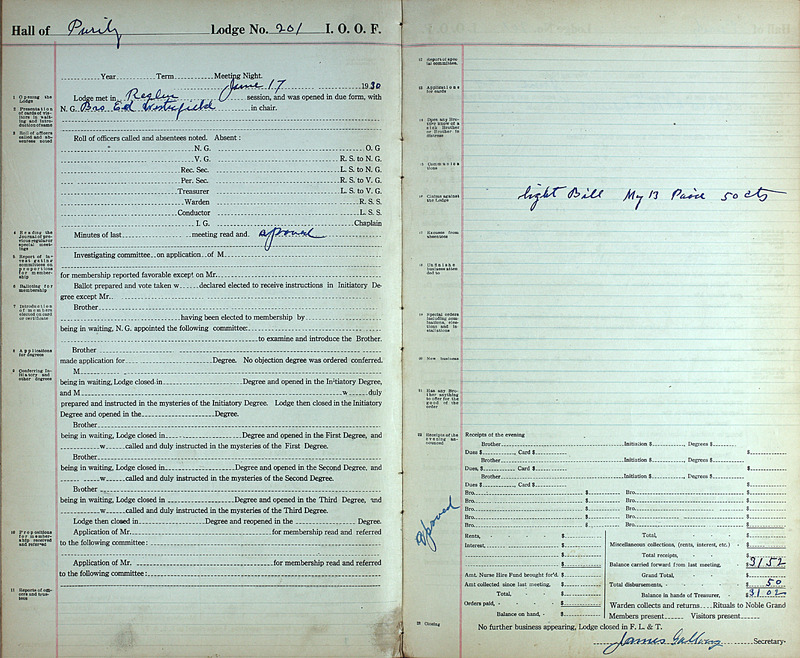 Hall of Purity Lodge No. 201 I. O. O. F.
Year Term Meeting Night.
June 17 1930
1 Opening the Lodge
Lodge met in Reglar session, and was opened in due form, with
2 Presentation of cards of visitors in waiting and introduction of same
N. G. Bro Ed Westerfield in chair.
3 Roll of officers called and absentees noted
Roll of officers called and absentees noted. Absent:
N. G. O. G
V. G. R. S. to N. G.
Rec. Sec. L. S. to N. G.
Per. Sec. R. S. to V. G.
Treasurer L. S. to V. G.
Warden R. S. S.
Conductor L. S. S.
I. G. Chaplain
4 Reading the Journal of previous regular or special meetings
Minutes of last meeting read and. apoved
5 Report of Investigating committees on propositions for membership
Investigating committee on application of M
for membership reported favorable except on Mr.
6 Balloting for membership
Ballot prepared and vote taken w declared elected to receive instructions in Initiatory De-
gree except Mr.
7 Introduction of members elected on card or certificate
Brother
having been elected to membership by
being in waiting, N. G. appointed the following committee:
to examine and introduce the Brother.
8 Applications for degrees
Brother
made application for Degree. No objection degree was ordered conferred.
9 Conferring Initiatory and other degrees
M
being in waiting, Lodge closed in Degree and opened in the Initiatory Degree,
and M w duly
prepared and instructed in the mysteries of the Initiatory Degree. Lodge then closed in the Initiatory
Degree and opened in the Degree.
Brother
being in waiting, Lodge closed in Degree and opened in the First Degree, and
w called and duly instructed in the mysteries of the First Degree.
Brother
being in waiting, Lodge closed in Degree and opened in the Second Degree, and
w called and duly instructed in the mysteries of the Second Degree.
Brother
being in waiting, Lodge closed in Degree and opened in the Third Degree, and
w called and duly instructed in the mysteries of the Third Degree.
Lodge then closed in Degree and reopened in the Degree.
10 Propositions for membership received and referred
Application of Mr. for membership read and referred
to the following committee:
Application of Mr. for membership read and referred
to the following committee:
11 Reports of officers and trustees
12 Report of special committees.
13 Applications for cards
14 Does any Brother know of a sick Brother or Brother in distress
15 Communications
16 Claims against the Lodge
light Bill My 13 Paid 50 cts
17 Excuses from absentees
18 Unfinished business attended to
19 Special orders including nominations, elections and installations
20 New business
21 Has any Brother anything to offer for the good of the order
22 Receipts of the evening announced
Receipts of the evening
Brother Initiation $ Degrees $
Dues $ Card $ $
Brother Initiation $ Degrees $
Dues, $ Card $ $
Brother Initiation $ Degrees $
Dues $ Card $ $
Bro. $ Bro. $
Bro. $ Bro. $
Bro. $ Bro. $
Bro. $ Bro. $
Bro. $ Bro. $
apoved
Rents, $ Total, $
Interest, $ Miscellaneous collections, (rents, interest, etc.) $
$ Total receipts, $
$ Balance carried forward from last meeting, $31 52
Amt. Nurse Hire Fund brought for'd. $ Grand Total, $
Amt collected since last meeting, $ Total disbursements, $ 50
Total, $ Balance in hands of Treasurer, $31 02
Orders paid, $ Warden collects and returns Rituals to Noble Grand
Balance on hand, $ Members present Visitors present
23 Closing
No further business appearing, Lodge closed in F. L. & T.
James Galloway Secretary.